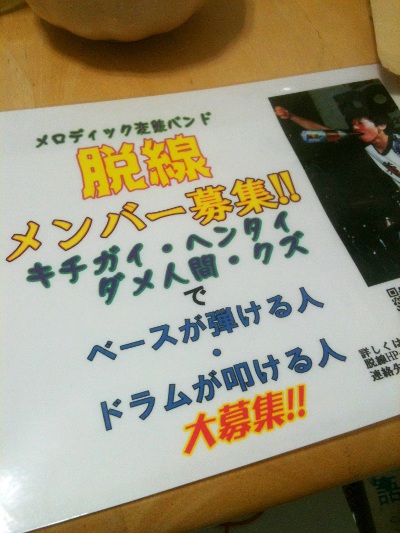 メロディック変態バンド
脱線
メンバー募集!!
キチガイ・ヘンタイ
ダメ人間・クズ
で
ベースが弾ける人
・
ドラムが叩ける人
大募集!!
詳しくは
脱線HP
連絡先